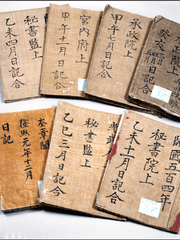 承政院上
甲午七月日記合
宮內府上
甲午十一月日記合
秘書監上
乙未四月日記合
開國五百四年
秘書院上
乙未十一月日記合
秘書監上
乙巳三月日記合
奎章閣
隆熙元年十二月
日記